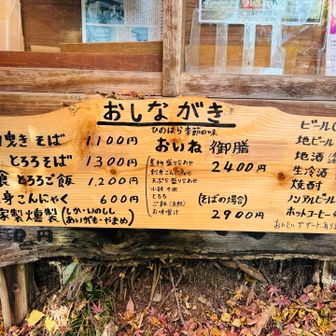 おしながき
曳きそば 1,100円
とろろそば 1,300円
食 とろろご飯 1,200円
身こんにゃく 600円
家製燻製(しか・いのしし
あいがも・やまめ)
ひのはら季節の味
おいね御膳
煮物盛り合わせ
刺身こんにゃく
天ぷら盛り合わせ
小鉢
とろろ
お味噌汁
2400円
(そばの場合)
2900円
ビール
地ビール
地酒
生冷酒
焼酎
ノンアルビール
ホットコーヒー
おいしいデザート